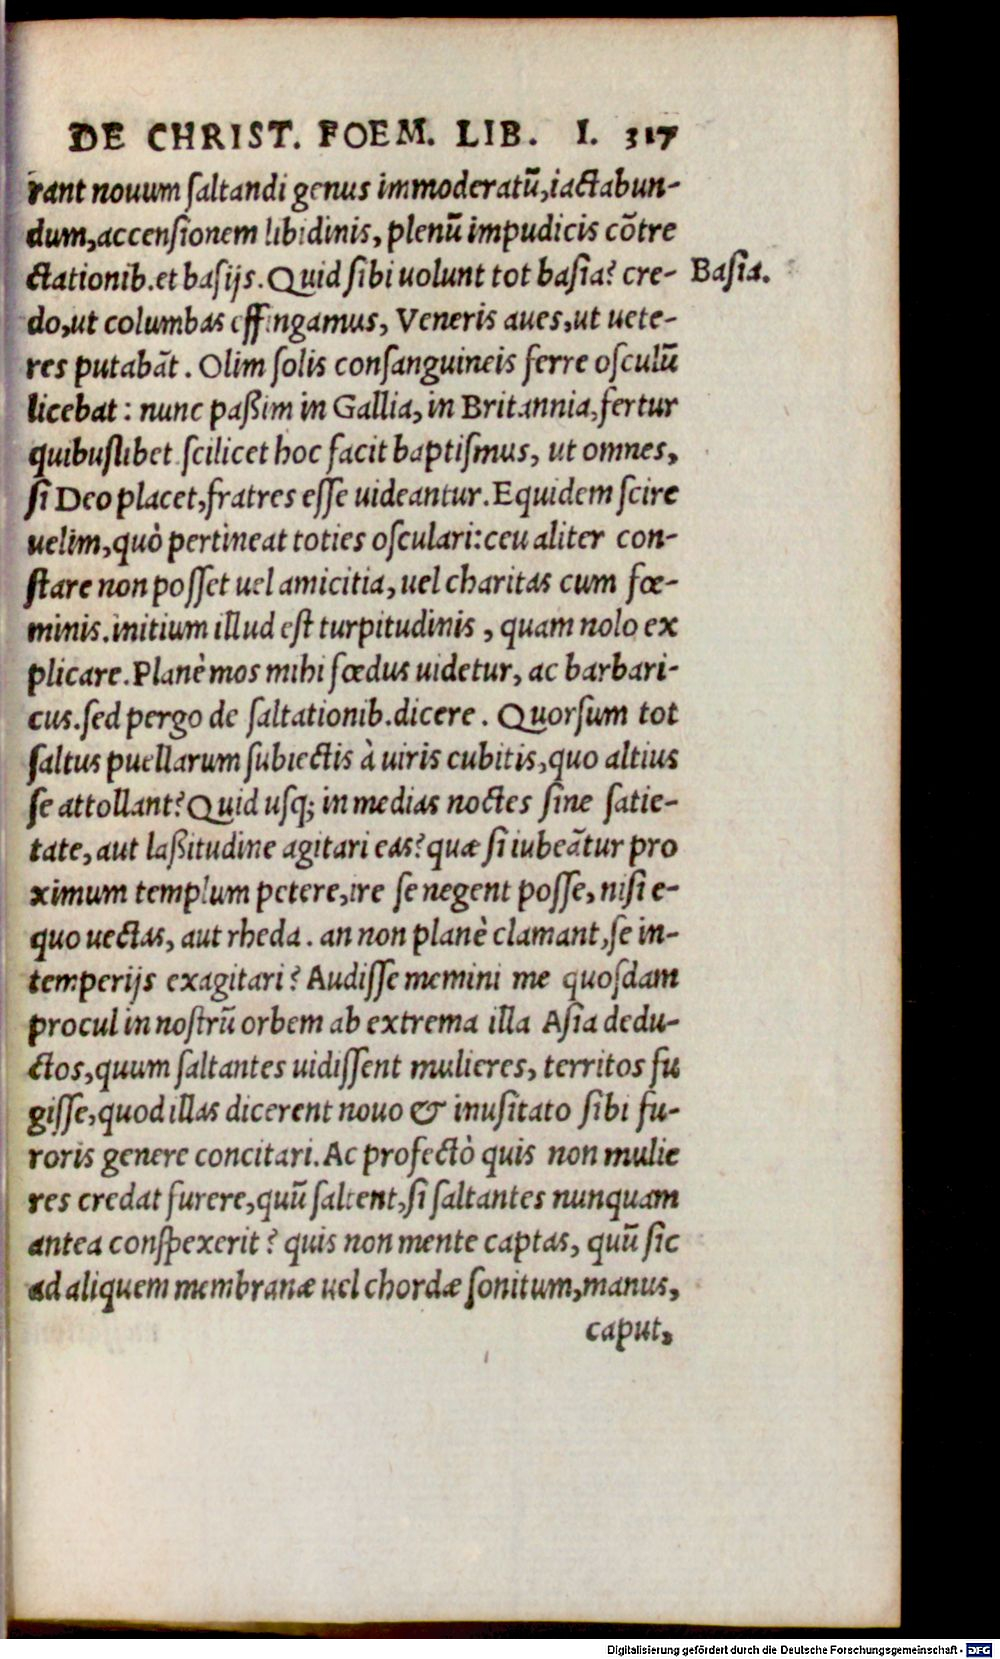 DE CHRIST. FOEM. LIB. I. 317
rant nouum ſaltandi genus immoderatū, iactabun-
dum, accenſionem libidinis, plenū impudicis cōtre
ctationib. et baſijs. Quid ſibi uolunt tot baſia? cre-
Baſia.
do, ut columbas effingamus, Veneris aues, ut uete-
res putabāt. Olim ſolis conſanguineis ferre oſculū
licebat: nunc paßim in Gallia, in Britannia, fertur
quibuſlibet. ſcilicet hoc facit baptiſmus, ut omnes,
ſi Deo placet, fratres eſſe uideantur. Equidem ſcire
uelim, quò pertineat toties oſculari: ceu aliter con-
ſtare non poſſet uel amicitia, uel charitas cum fœ-
minis. initium illud eſt turpitudinis, quam nolo ex
plicare. Planè mos mihi fœdus uidetur, ac barbari-
cus. ſed pergo de ſaltationib. dicere. Quorſum tot
ſaltus puellarum ſubiectis à uiris cubitis, quo altius
ſe attollant? Quid uſq; in medias noctes ſine ſatie-
tate, aut laßitudine agitari eas? quæ ſi iubeātur pro
ximum templum petere, ire ſe negent poſſe, niſi e-
quo uectas, aut rheda. an non planè clamant, ſe in-
temperijs exagitari? Audiſſe memini me quoſdam
procul in noſtrū orbem ab extrema illa Aſia dedu-
ctos, quum ſaltantes uidiſſent mulieres, territos fu
giſſe, quod illas dicerent nouo & inuſitato ſibi fu-
roris genere concitari. Ac profectò quis non mulie
res credat furere, quū ſaltent, ſi ſaltantes nunquam
antea conſpexerit? quis non mente captas, quū ſic
ad aliquem membranæ uel chordæ ſonitum, manus,
caput,
Digitalisierung gefördert durch die Deutsche Forschungsgemeinschaft - DFG